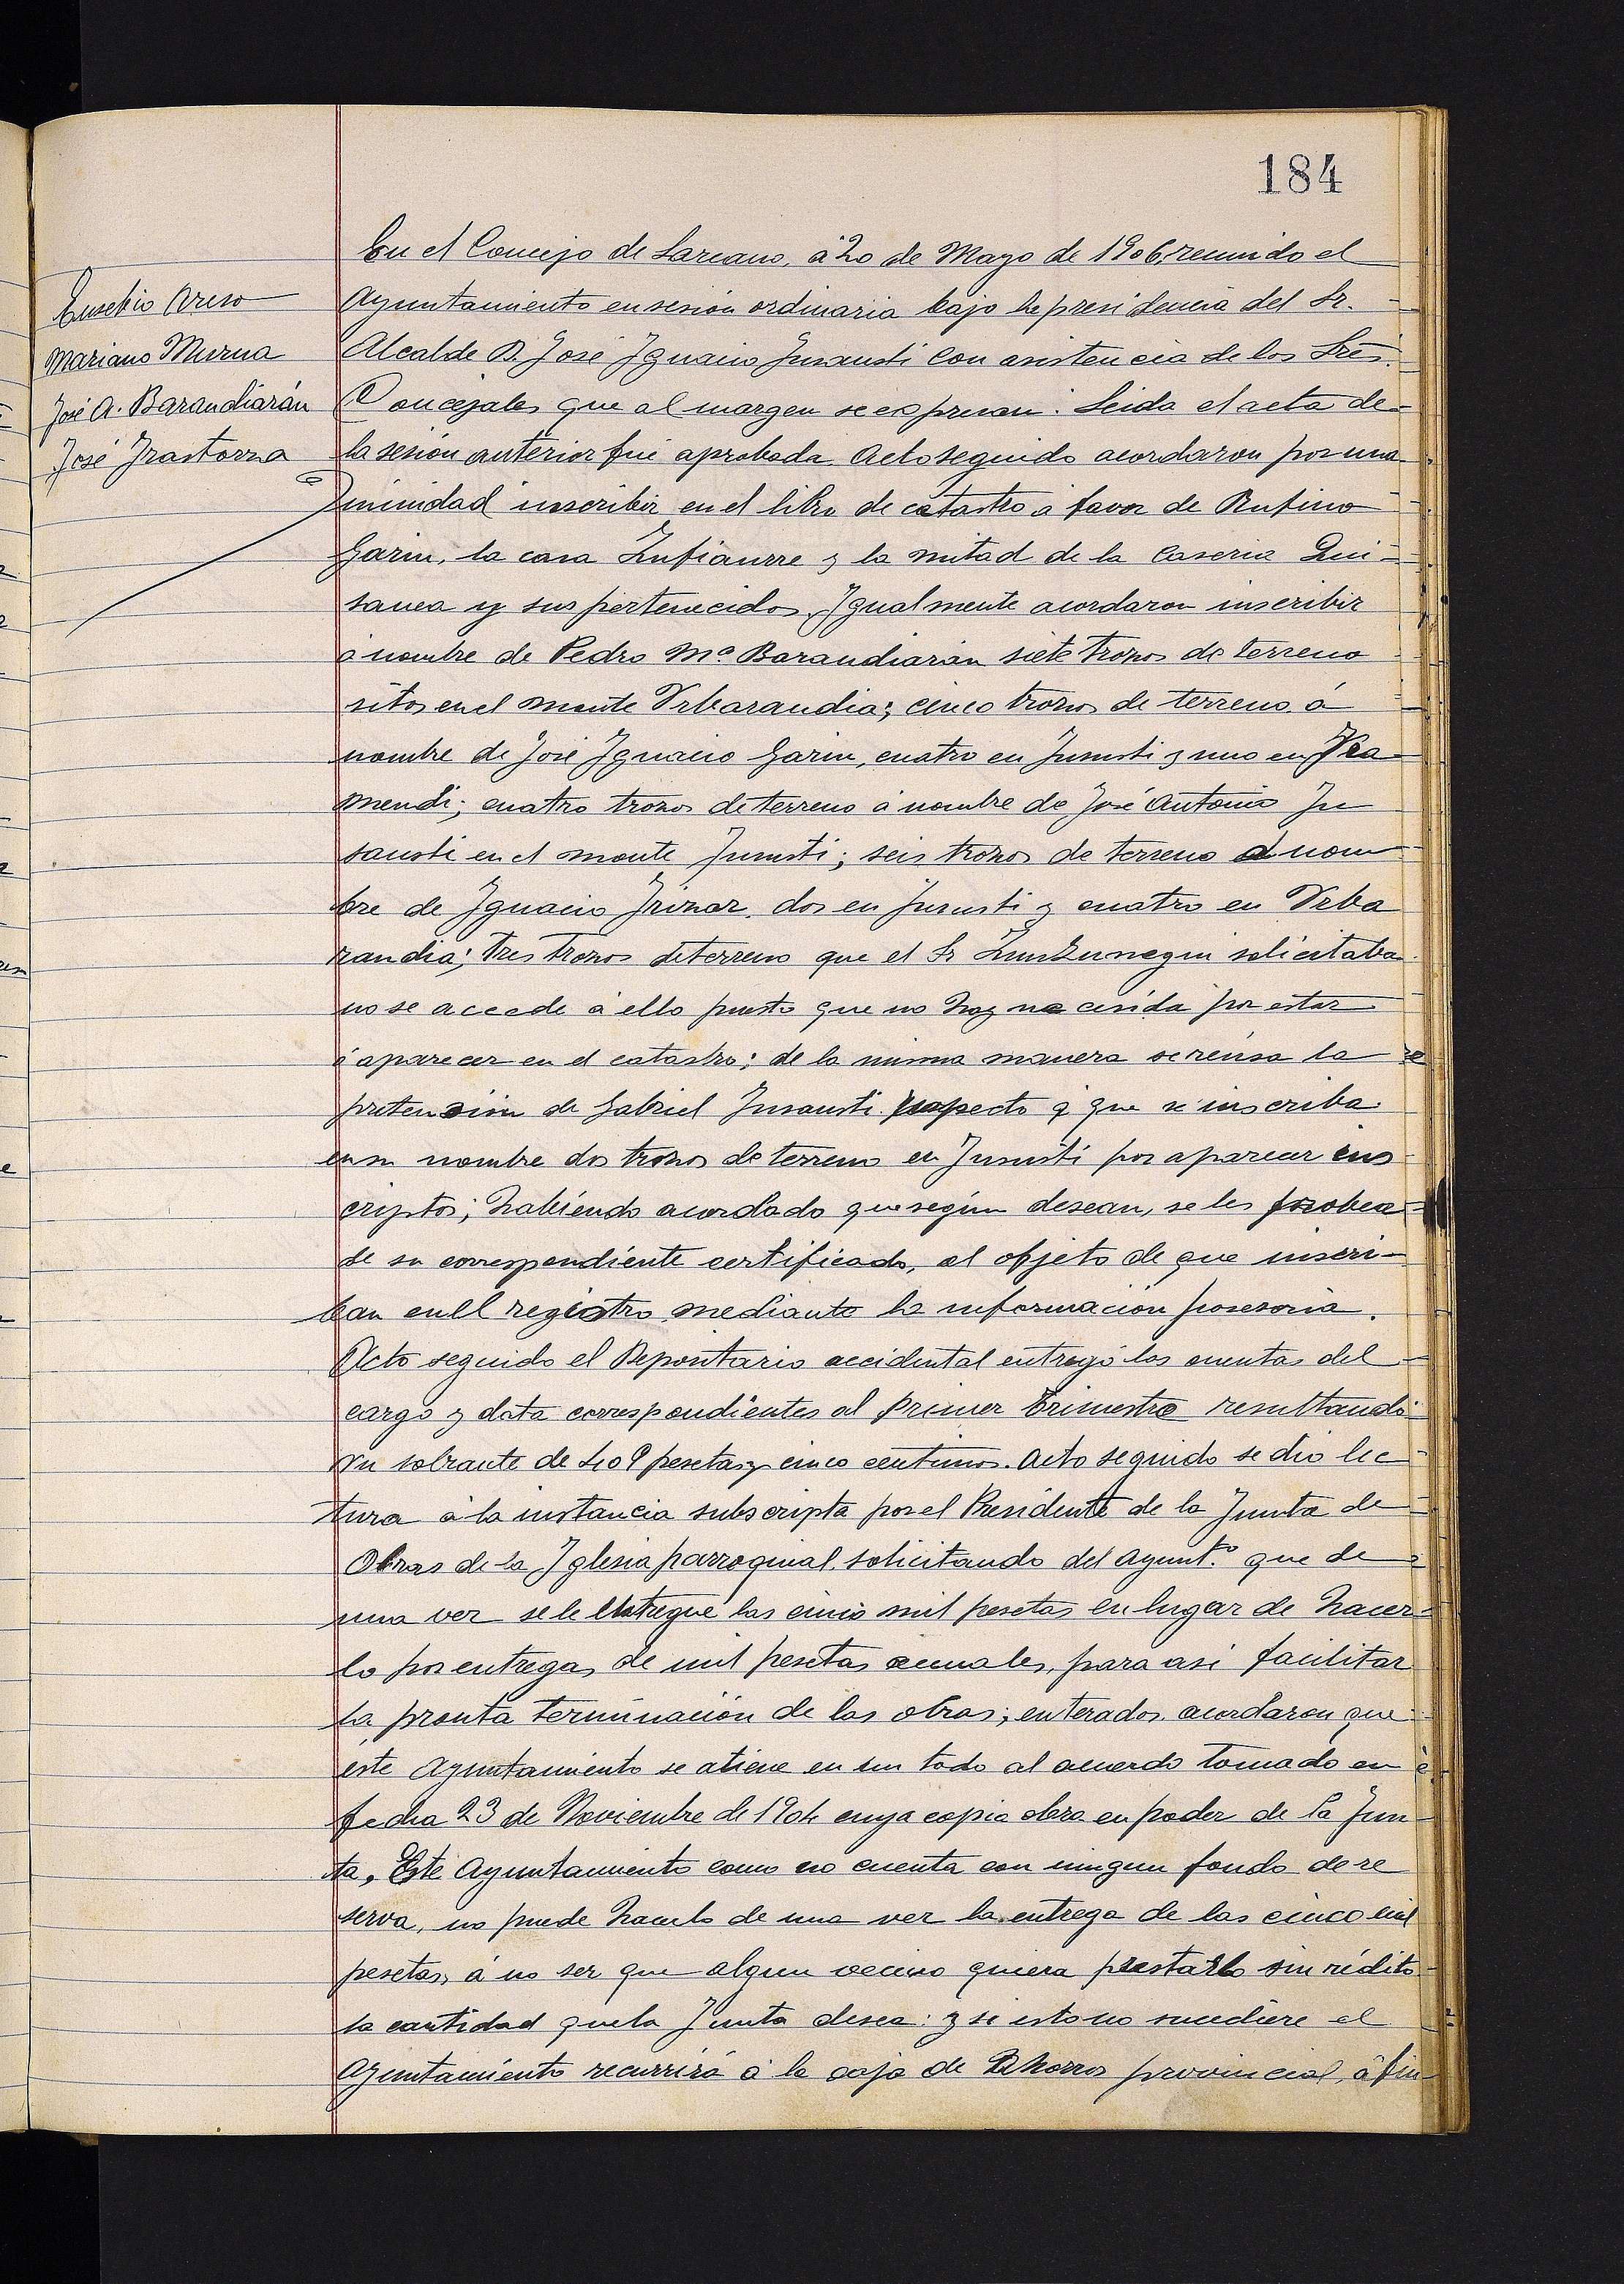 184
Eusebio Areso
Mariano Murua
José A. Barandiarán
José Irastorza
En el Concejo de Lazcano, á 20 de Mayo de 1906, reunido el
Ayuntamiento en sesión ordinaria bajo la presidencia del Sr.
Alcalde D. José Ignacio Insausti con asistencia de los Sres.
Concejales que al margen se expresan. Leida el acta de
la sesión anterior fué aprobada. Acto seguido acordaron por una
nimidad inscribir en el libro de catastro á favor de Rufino
Garin, la casa Zufiaurre y la mitad de la Caseria
y sus pertenecidos. Igualmente acordaron inscribir
á nombre de Pedro Mª Barandiarán siete trozos de terreno
sitos en el monte Urbarandia; cinco trozos de terreno á
nombre de José Ignacio Garin, cuatro en Jurusti y uno en
mendi; cuatro trozos de terreno á nombre de José Antonio In
sausti en el monte Jurusti; seis trozos de terreno á nom
bre de Ignacio Irizar, dos en Jurusti y cuatro en Urba
randia; tres trozos de terreno que el Sr Zunzunegui solicitaba
no se accede á ello puesto que no hay cerida por estar
á aparecer en el catastro; de la misma manera se reusa la
pretensión de Gabriel Insausti respecto á que se inscriba
en su nombre dos trozos de terreno en Jurusti por aparecer ins
criptos; habiendo acordado que según desean, se les probea
de su correspondiente certificado, al objeto de que inscri-
ban en el registro mediante la información posesoria.
Acto seguido el Depositario accidental entregó las cuentas del
cargo y data correspondientes al primer trimestre resultando
un sobrante de 409 pesetas y cinco centimos. Acto seguido se dio lec
tura á la instancia subscripta por el Presidente de la Junta de
Obras de la Iglesia parroquial solicitando del Ayunt.º que de
una vez se le entregue las cinco mil pesetas en lugar de hacer-
lo por entregas de mil pesetas anuales, para asi facilitar
la pronta terminación de las obras; enterados acordaron que
este Ayuntamiento se atiene en un todo al acuerdo tomado en
fecha 23 de Noviembre de 1904 cuya copia obra en poder de la Jun
ta. Este Ayuntamiento como no cuenta con ningun fondo de re
serva, no puede hacerlo de una vez la entrega de las cinco mil
pesetas, á no ser que algun vecino quiera prestarlo sin rédito
la cantidad que la Junta desea: y si esto no sucediere el
Ayuntamiento recurrirá á la caja de Ahorros provincial, á fin